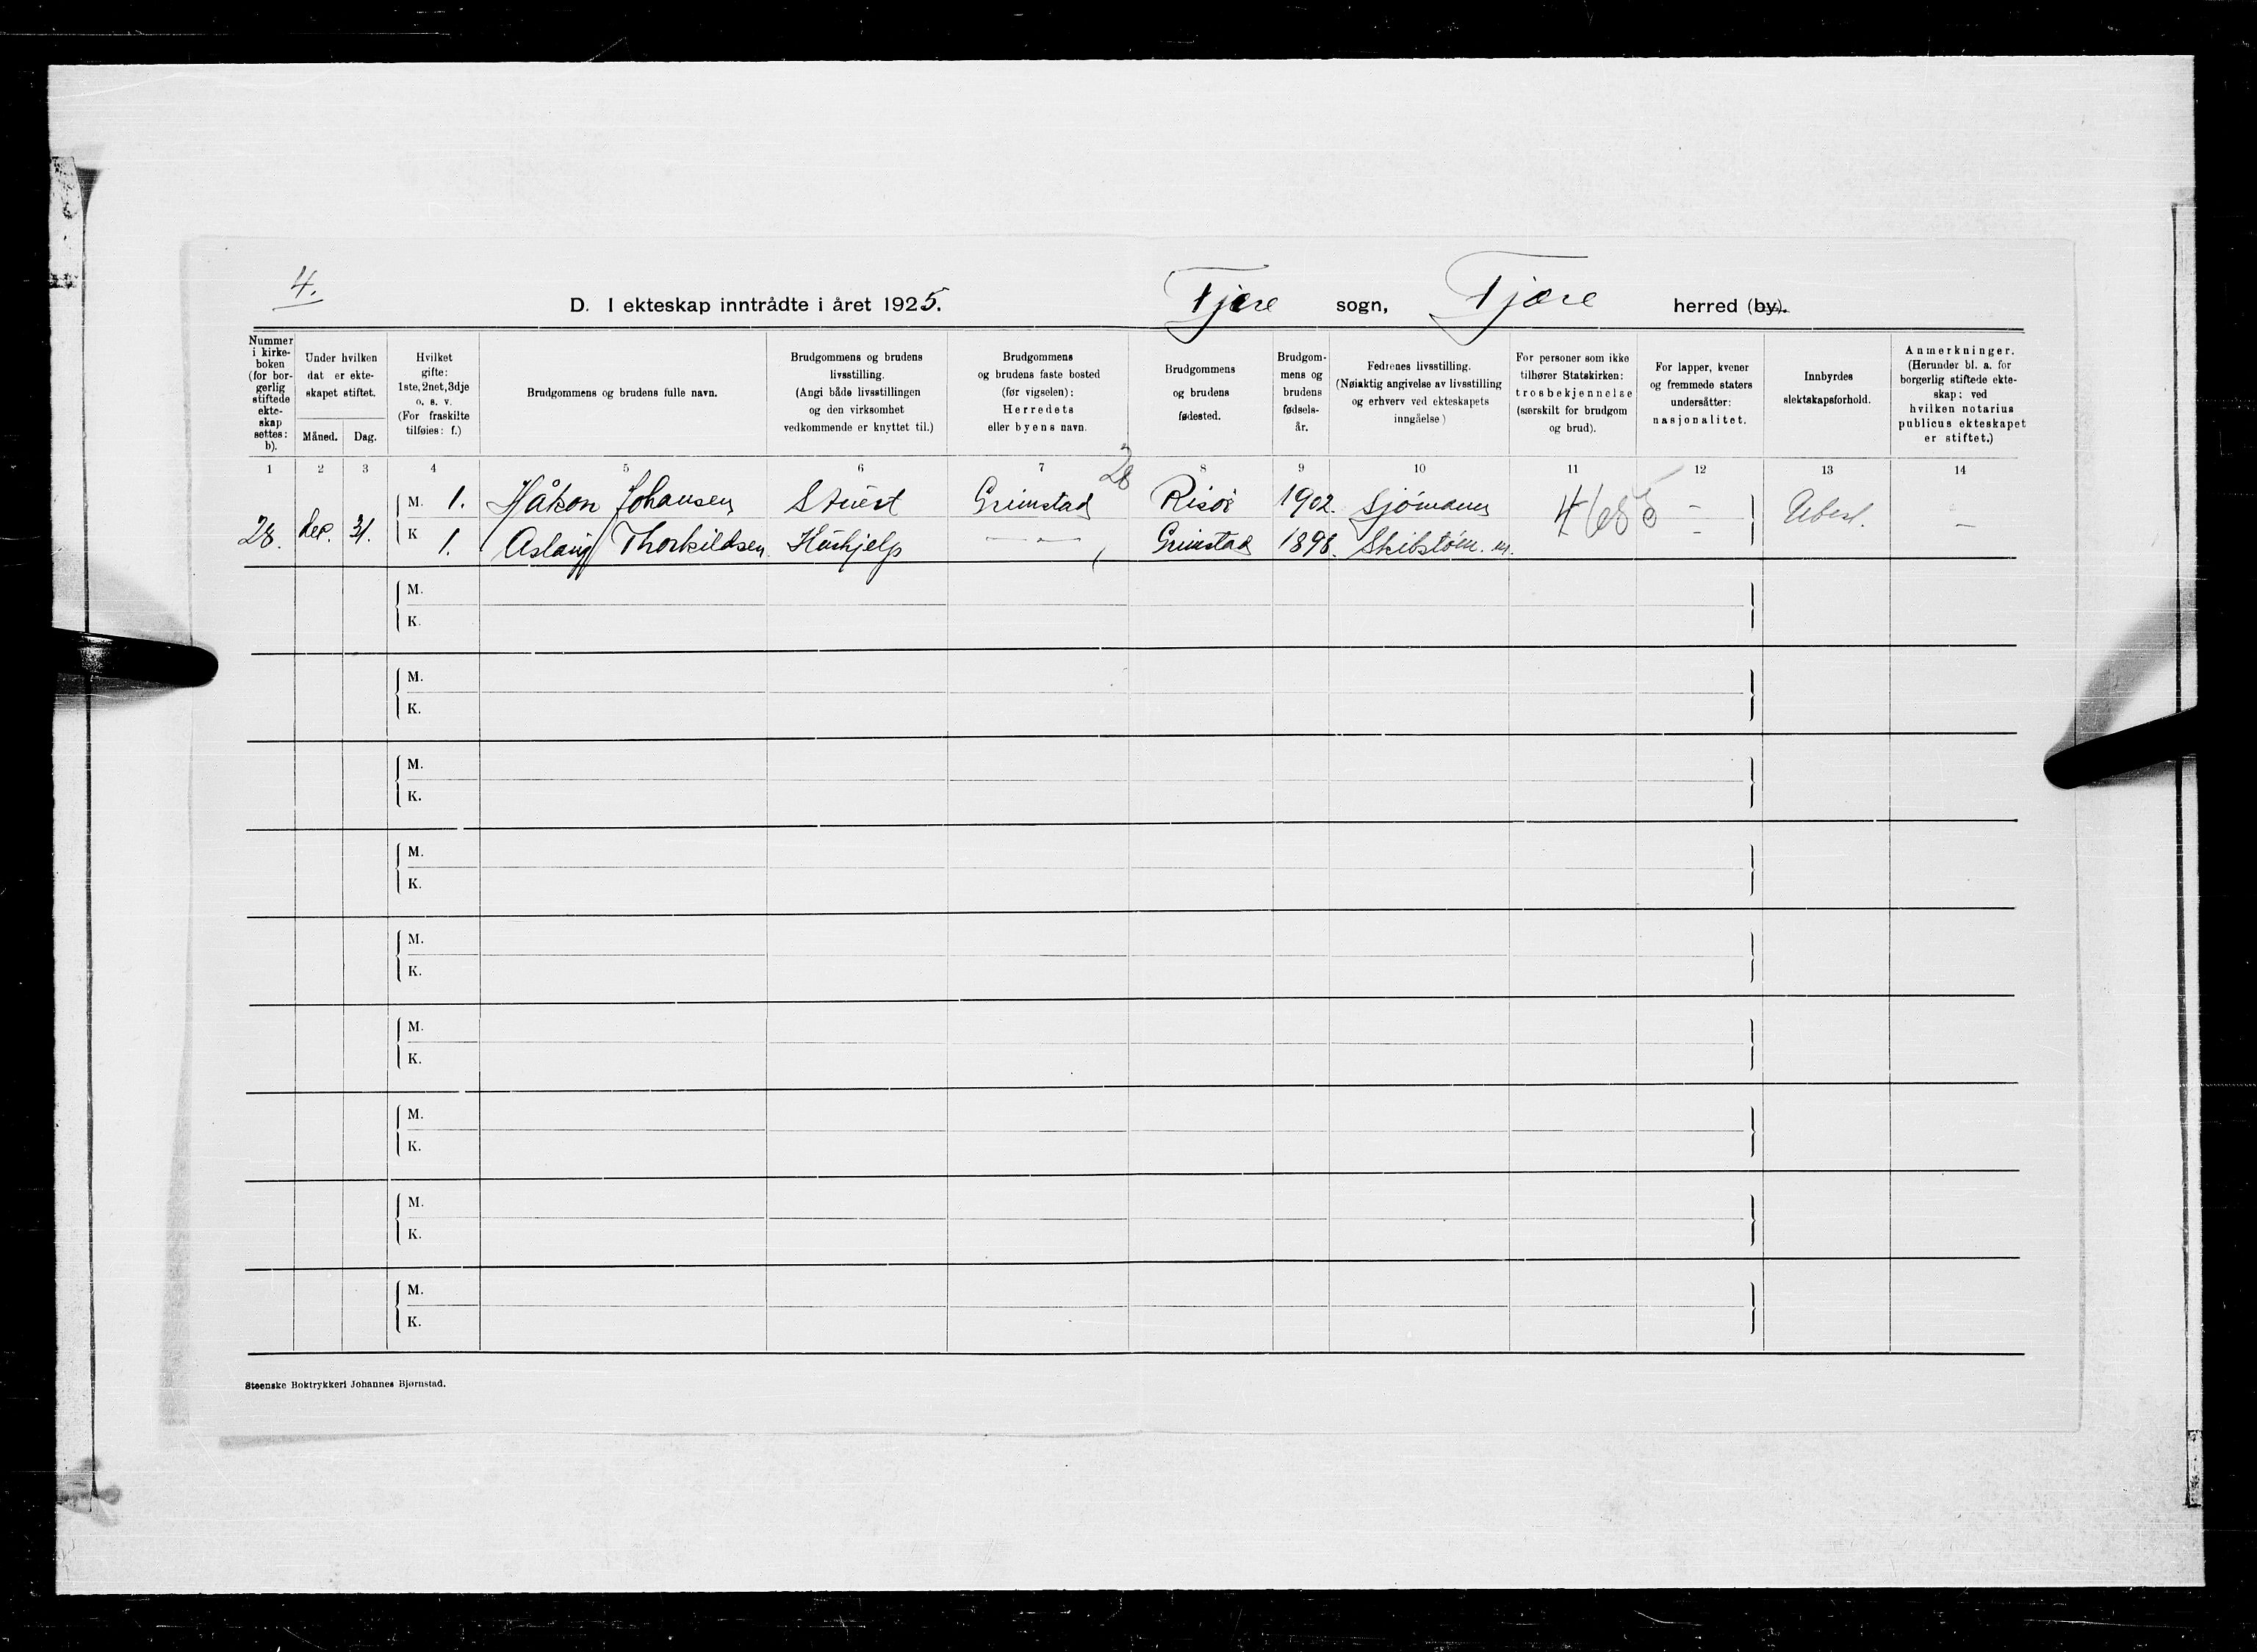 4.
D. I ekteskap inntrådte i året 1925. Fjære sogn, Fjære herred (by).
Nummer i kirke- boken (for bor- gerlig stiftede ekte- skap settes: b).
Under hvilken dat er ekte- skapet stiftet.
Måned. Dag.
Hvilket gifte: 1ste, 2net, 3dje o. s. v. (For fraskilte tilføies: f.)
Brudgommens og brudens fulle navn.
Brudgommens og brudens livsstilling. (Angi både livsstillingen og den virksomhet vedkommende er knyttet til.)
Brudgommens og brudens faste bosted (før vigselen): Herredets eller byens navn.
Brudgommens og brudens fødested.
Brudgom- mens og brudens fødsels- år.
Fedrenes livsstilling. (Nøiaktig angivelse av livsstilling og erhverv ved ekteskapets inngåelse)
For personer som ikke tilhører Statskirken: trosbekjennelse (særskilt for brudgom og brud).
For lapper, kvener og fremmede staters undersåtter: nasjonalitet.
Innbyrdes slektskapsforhold.
Anmerkninger. (Herunder bl. a. for borgerlig stiftede ekte- skap; ved hvilken notarius publicus ekteskapet er stiftet.)
1 2 3 4 5 6 7 8 9 10 11 12 13 14
28
M. 1. Håkon Johansen Stuert Grimstad Risör 1902. Sjömann 4685 - Ubesl. -
28. Des. 31. K 1. Aslaug Thorkildsen Hushjelp - " - Grimstad 1898. Skibstöm. m. -
M.
K.
M.
K.
M.
K.
M.
K.
M.
K.
M.
K.
M.
K.
M.
K.
M.
K.
Steenske Boktrykkeri Johannes Bjørnstad.